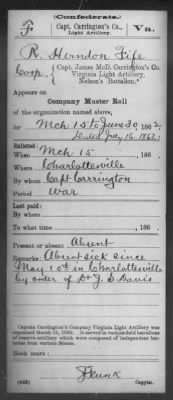 (Confederate.)
F Capt. Carrington's Co., Va.
Light Artillery.
R. Herndon Fife
Corp., Capt. James McD. Carrington's Co.
Virginia Light Artillery,
Nelson's Battalion.*
Appears on
Company Muster Roll
of the organization named above,
for Mch 15 to June 30, 1862.
Dated July 16, 1862.
Enlisted:
When Mch 15, 186 .
Where Charlottesville
By whom Capt Carrington
Period War
Last paid:
By whom
To what time , 186 .
Present or absent: Absent
Remarks: Absent sick since
May 10th in Charlottesville
by order of Dr J. S. Davis
Captain Carrington's Company Virginia Light Artillery was
organized March 15, 1862. It served in various field battalions
of reserve artillery which were composed of independent batteries
from various States.
Book mark:
(642) Copyist.